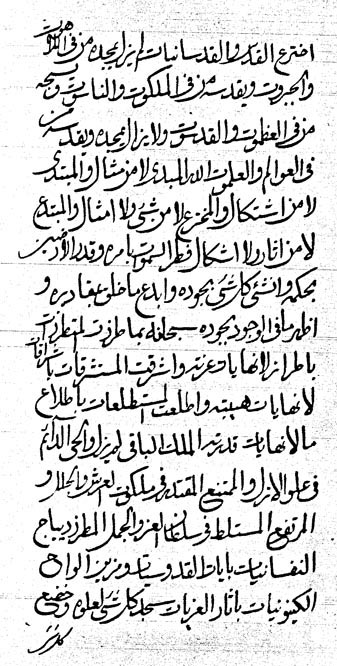 اخترع القدس والقدسانيات لم يزل يمجده من في اللاهوت
والجبروت ويقدسه من في الملكوت والناسوت ويسبحه
من في العظموت والقدسوت ولا يزال يمجده ويقدسه من
في العوالم والعلموت الله المبدئ لا من مثال والمبتدئ
لا من اشتكال والمخترع لا من شئ ولا امثال والمبتدع
لا من اثار ولا اشكال فطر السموات بامره وقدر الارضين
بحكمه وانشئ كل شئ بجوده وابدع ما خلق بمقاديره و
اظهر ما في الوجود بجوده سبحانه بما طرزت المتطرزات
باطراز لانهايات عزته واشرقت المشرقات باشراقات
لانهايات هيبته واطلعت المستطلعات باطلاع
ما لانهايات قدرته الملك الباقي لم يزل والحي الدائم
في علو الازل والممتنع المقتدر في ملكوت العز والجلال و
المرتفع المستلط في سلطان العز والجمال المطرز ديباج
النفسانيات بايات القدوسيات ومزين الواح
الكينونيات باثار العزيات سجد كل شئ لعلوه وخضع
كل شئ